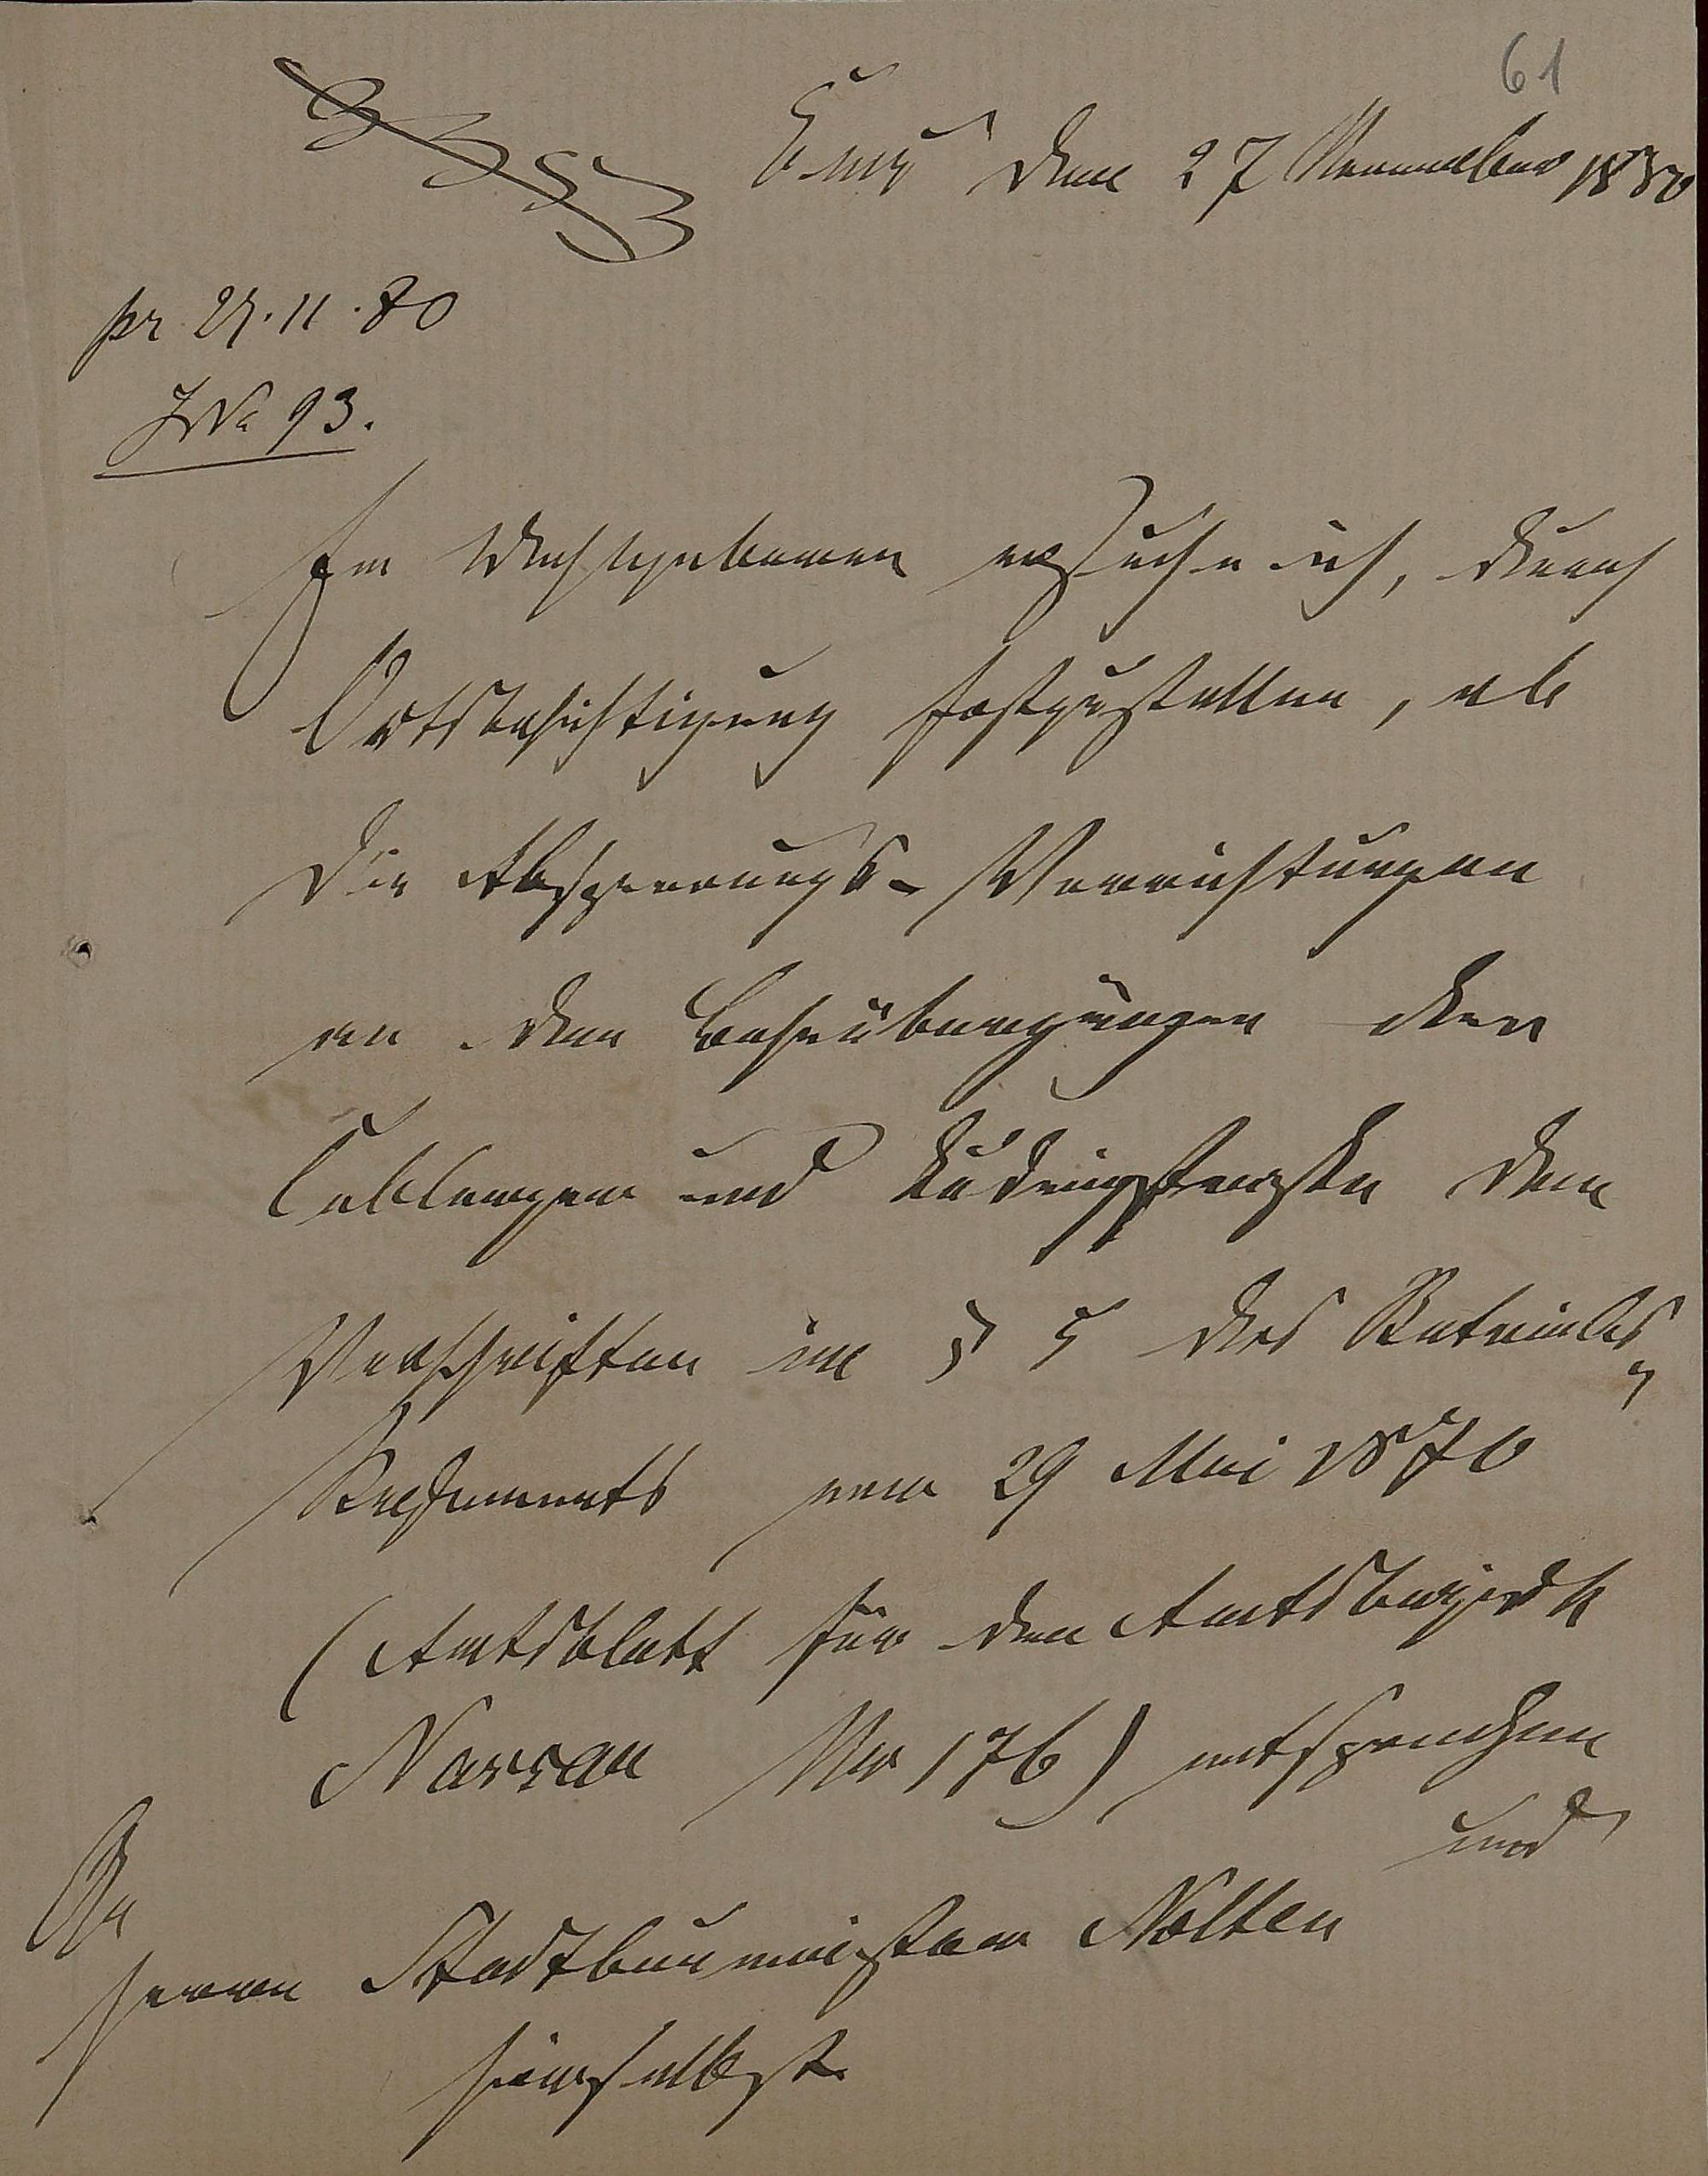 61
Ems den 27 November 1880
pr 27.11.80
JNo 93.
Ew Wohlgeboren ersuche ich, durch
Ortsbesichtigung festzustellen, ob
die Absperrungs-Vorrichtungen
an den Bahnübergängen der
Coblenzer und Ludwigstraße den
Vorschriften im § 5 des Betriebs-
Reglements vom 29 Mai 1870
(Amtsblatt für den Amtsbezirk
Nassau No 176) entsprechen
und
An
Herrn Stadtbaumeister Nolten
hierselbst